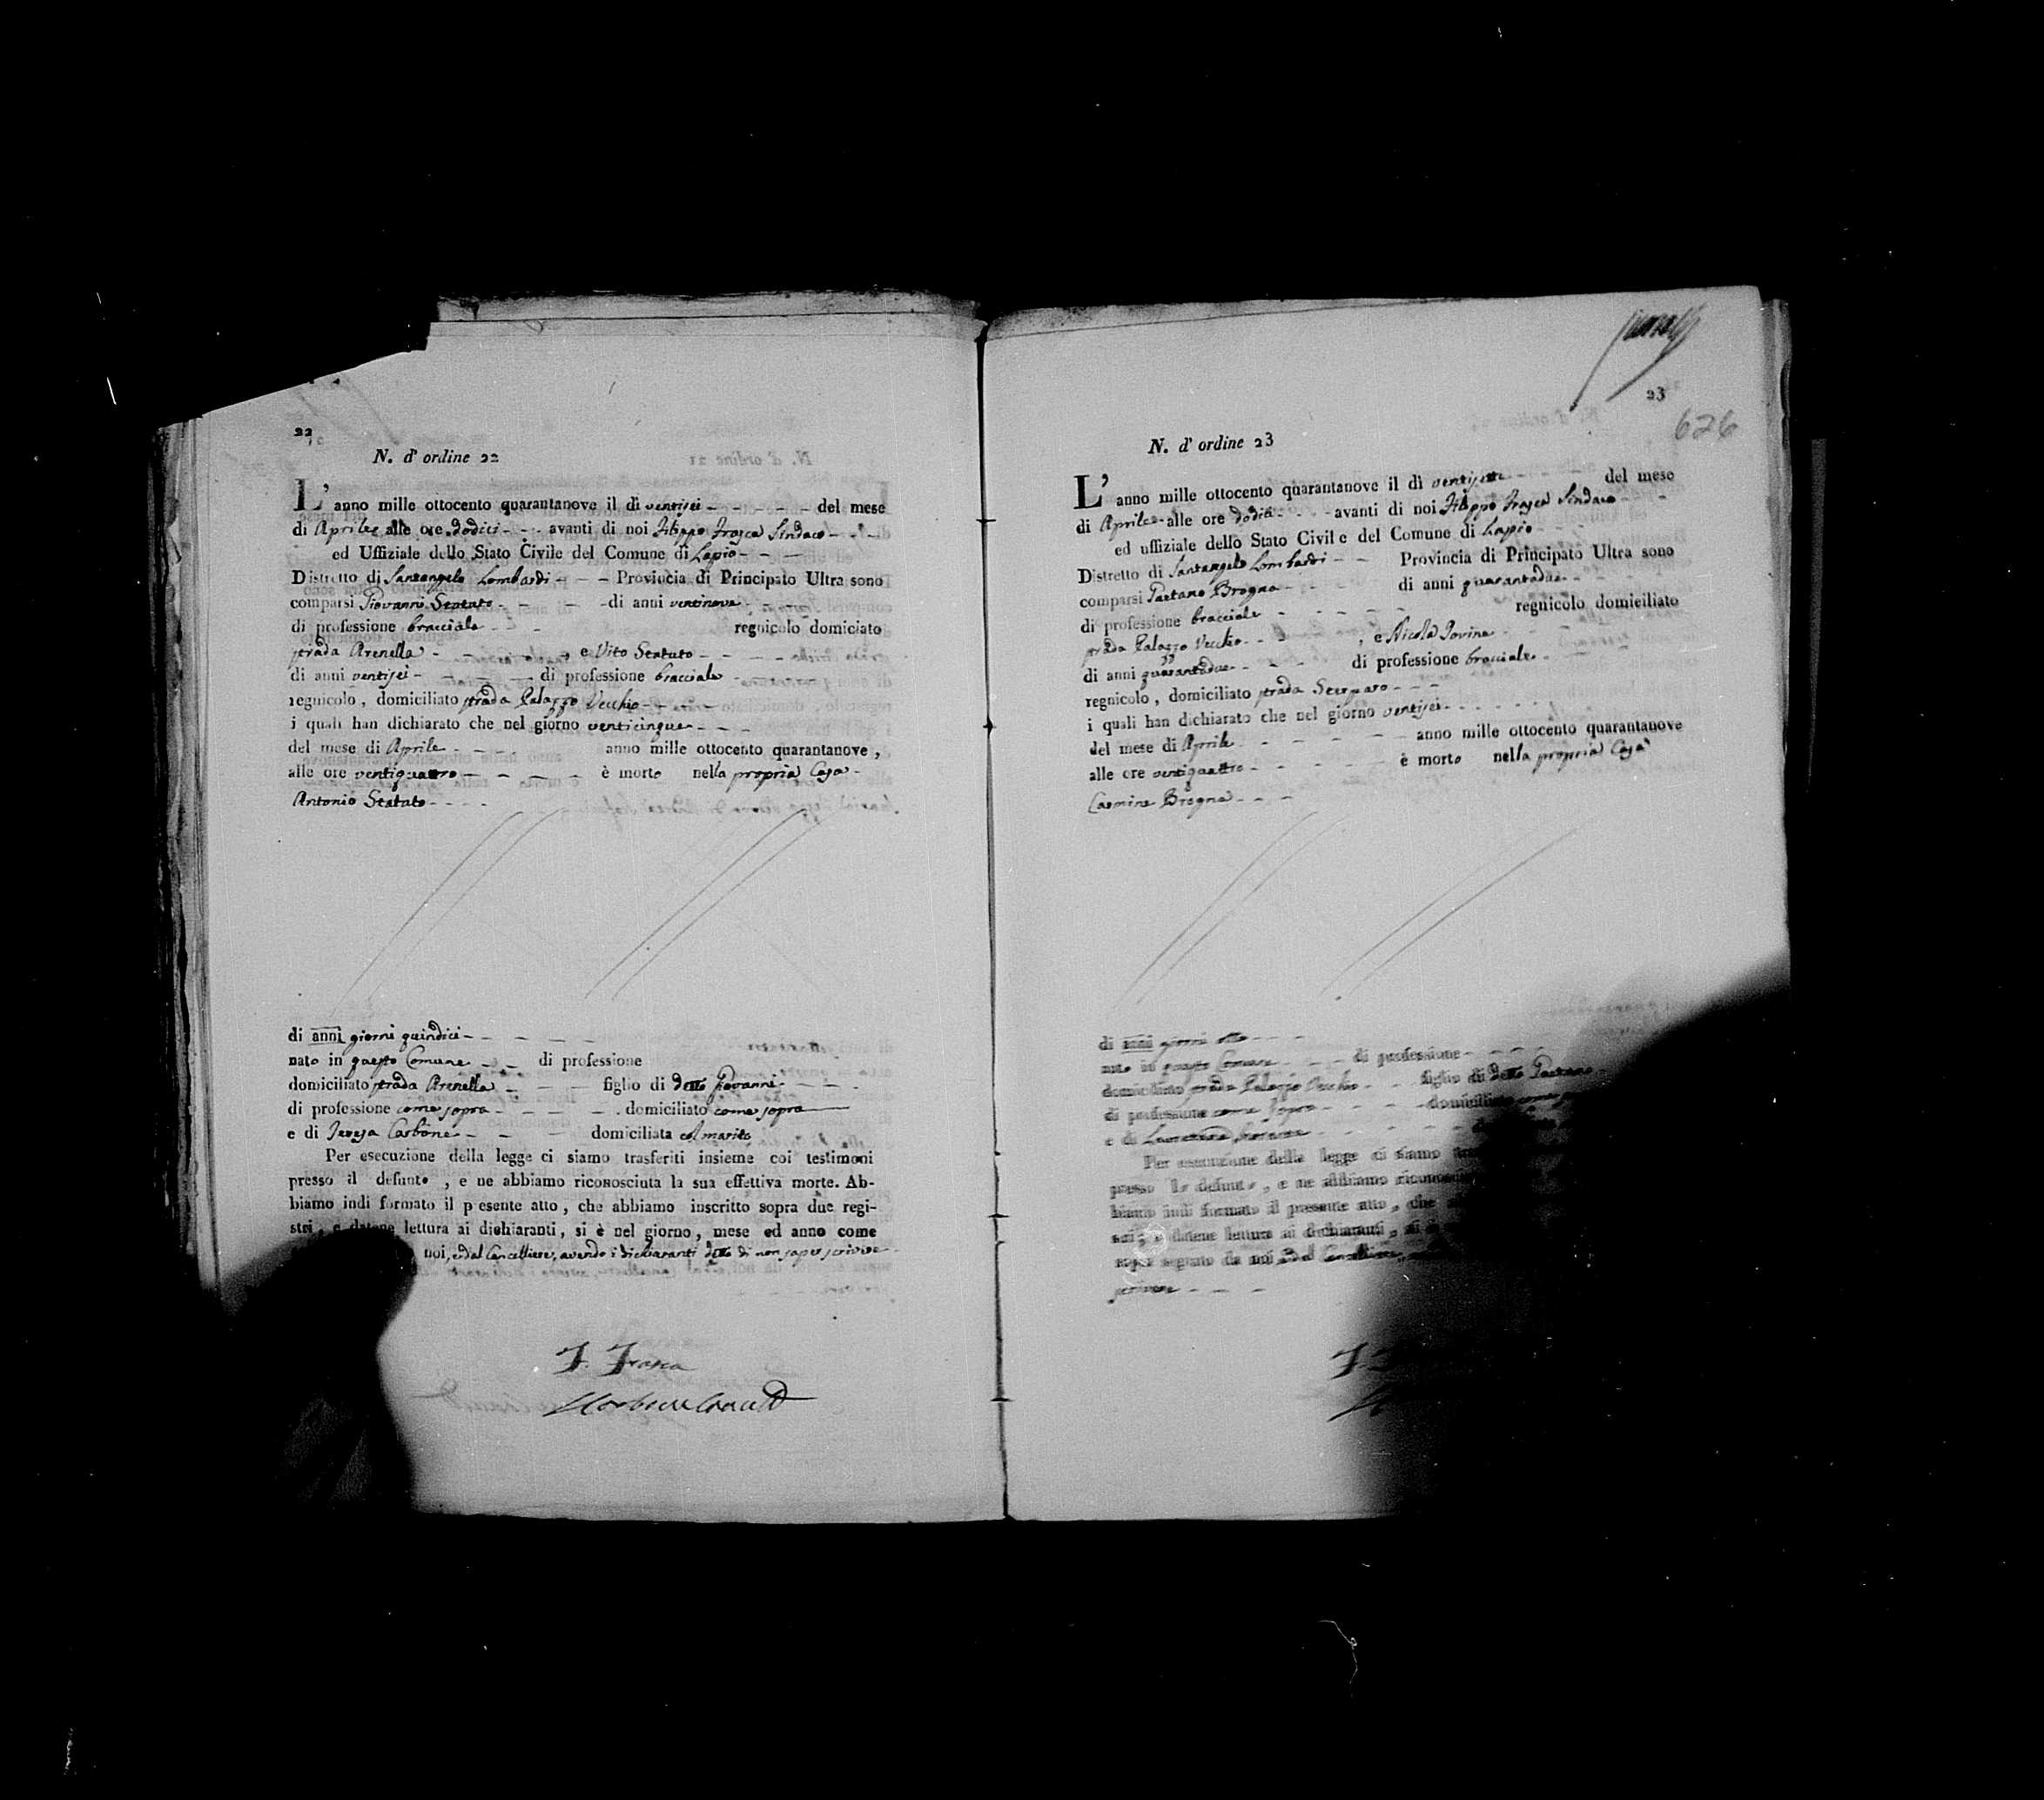 22
N. d' ordine 22
L' anno mille ottocento quarantanove il dì ventisei del mese
di Aprile alle ore dodici avanti di noi Filippo Frasca Sindaco
ed Uffiziale dello Stato Civile del Comune di Lapio
Distretto di Santangelo Lombardi Provincia di Principato Ultra sono
comparsi Giovanni Statuto di anni ventinove
di professione bracciale regnicolo domiciato
strada Arenella , e Vito Statuto
di anni ventisei di professione bracciale
regnicolo, domiciliato strada Palazzo Vecchio
i quali han dichiarato che nel giorno venticinque
del mese di Aprile anno mille ottocento quarantanove,
alle ore ventiquattro è morto nella propria Casa
Antonio Statuto
di anni giorni quindici
nato in questo Comune di professione
domiciliato strada Arenella figlio di detto Giovanni
di professione come sopra domiciliato come sopra
e di Teresa Carbone domiciliata col marito
Per esecuzione della legge ci siamo trasferiti insieme coi testimoni
presso il defunto, e ne abbiamo riconosciuta la sua effettiva morte. Ab-
biamo indi formato il p esente atto, che abbiamo inscritto sopra due regi-
stri, e datone lettura ai dichiaranti, si è nel giorno, mese ed anno come
noi, ed al Cancelliere, avendo i dichiaranti detto di non saper scrivere
F. Frasca
23
626
N. d' ordine 23
L' anno mille ottocento quarantanove il dì ventisette del mese
di Aprile alle ore dodici avanti di noi Filippo Frasca Sindaco
ed uffiziale dello Stato Civile del Comune di Lapio
Distretto di Santangelo Lombardi Provincia di Principato Ultra sono
comparsi Gaetano Brogna di anni quarantadue
di professione bracciale regnicolo domiciliato
strada Palazzo Vecchio , e Nicola Iovine
di anni quarantadue di professione bracciale
regnicolo, domiciliato strada
i quali han dichiarato che nel giorno ventisei
del mese di Aprile anno mille ottocento quarantanove
alle ore ventiquattro è morto nella propria Casa
Carmine Brogna
di anni giorni otto
nato in questo Comune di professione
domiciliato strada Palazzo Vecchio figlio di detto Gaetano
di professione come sopra domiciliato come
e di
Per esecuzione della legge ci siamo
presso lo defunto, e ne abbiamo
biamo indi formato il presente atto, che
stri, e datone lettura ai dichiaranti, si è
sopra segnato da noi, ed al Cancelliere,
scrivere
F.